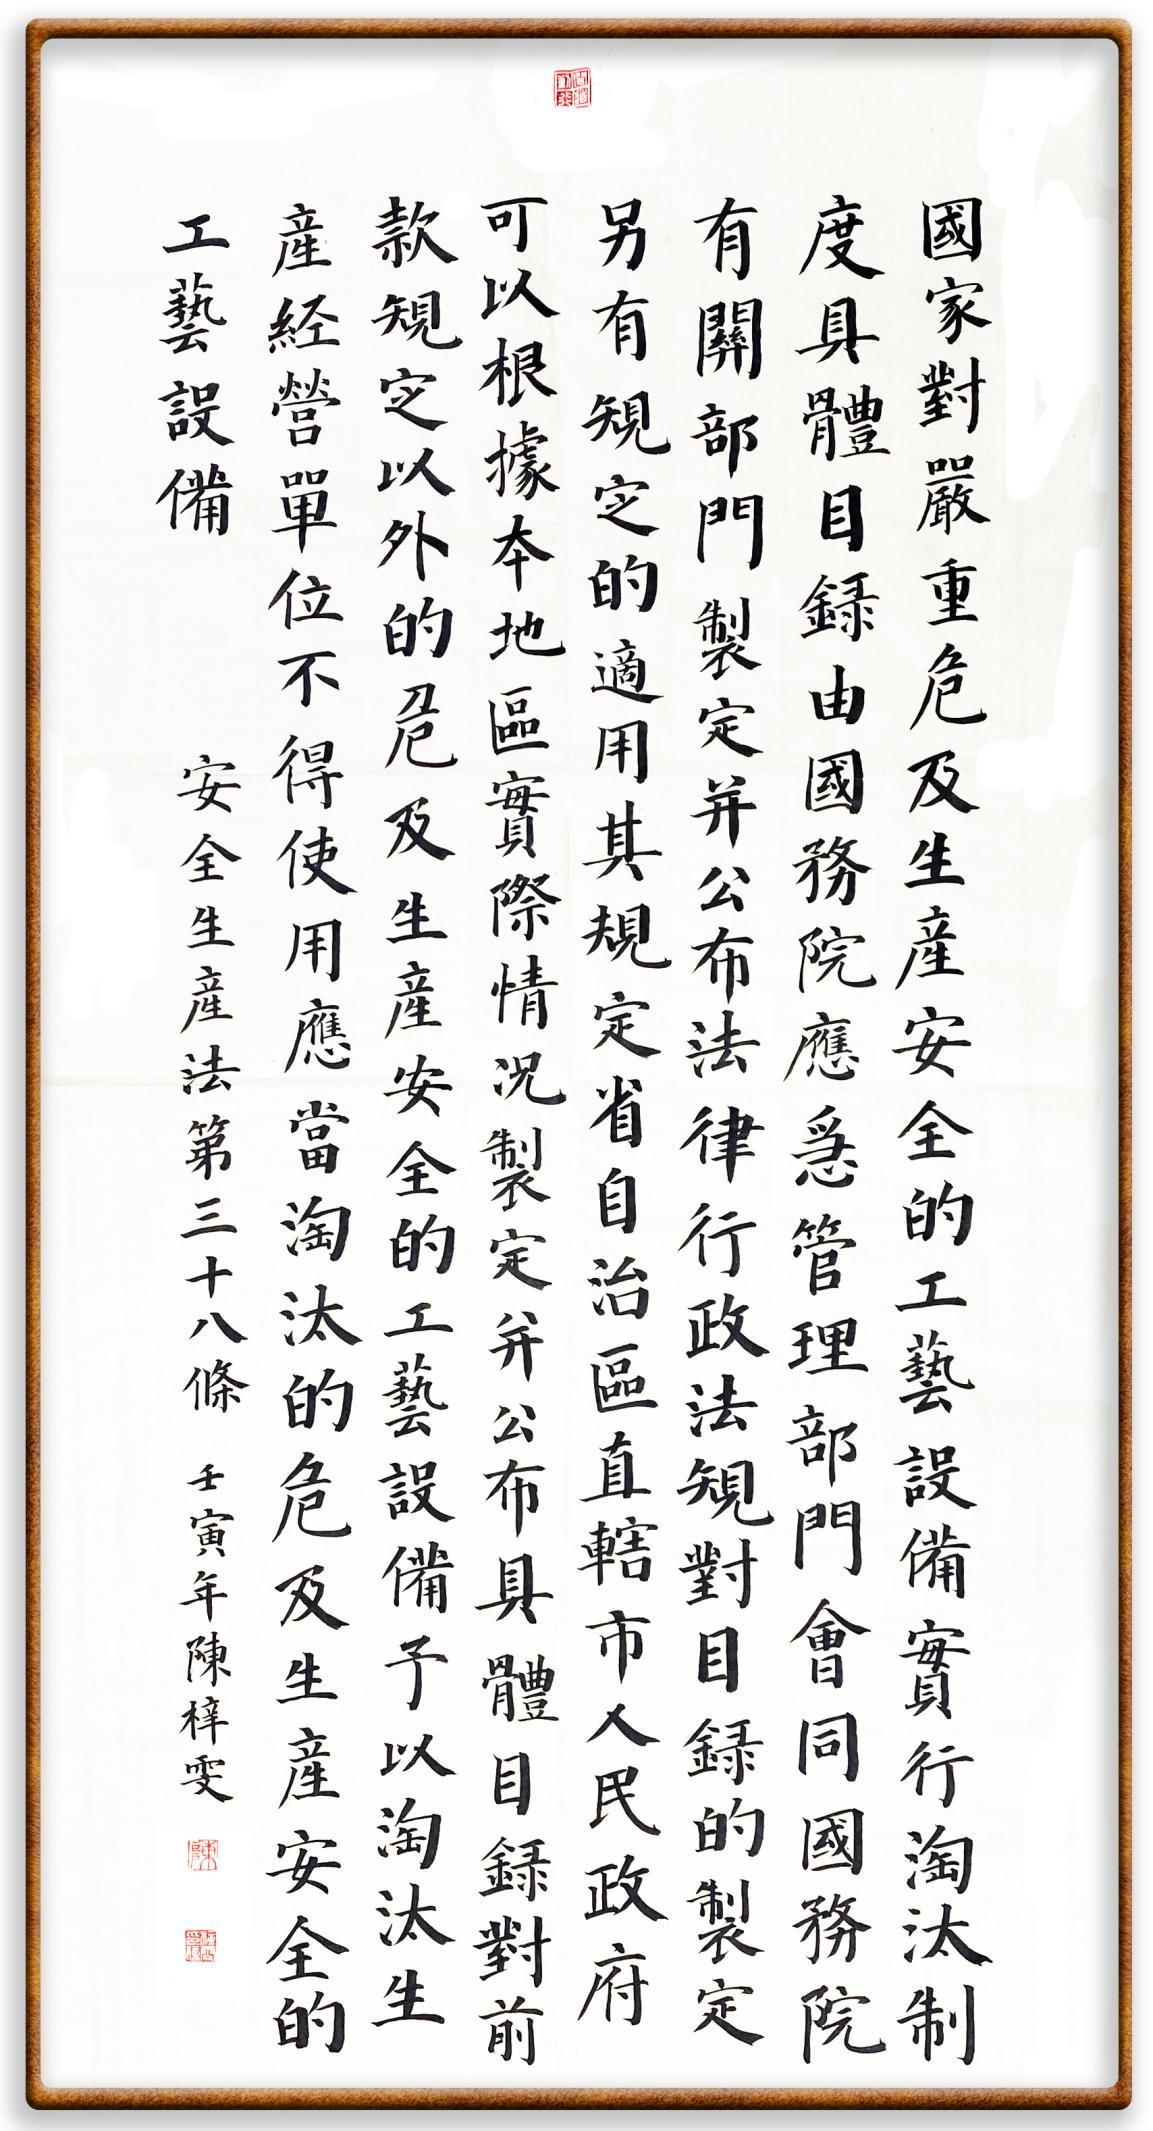 國家對嚴重危及生産安全的工藝設備實行淘汰制
度具體目録由國務院應急管理部門會同國務院
有關部門製定并公布法律行政法規對目録的製定
另有規定的適用其規定省自治區直轄市人民政府
可以根據本地區實際情况製定并公布具體目録對前
款規定以外的危及生産安全的工藝設備予以淘汰生
産经營單位不得使用應當淘汰的危及生産安全的
工藝設備
安全生産法第三十八條 壬寅年陳梓雯
陳